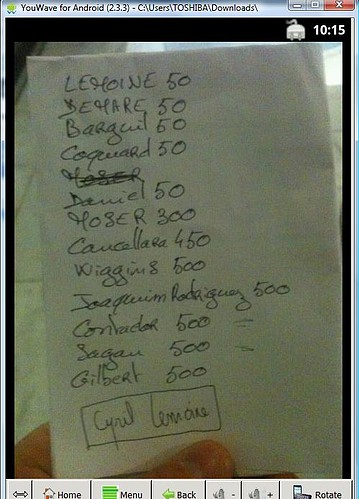 YouWave for Android (2.3.3) - C:\Users\TOSHIBA\Downloads\
10:15
LEMOINE 50
DEMARE 50
Barguil 50
Coquard 50
MOSER
Daniel 50
MOSER 300
Cancellara 450
Wiggins 500
Joaquim Rodriguez 500
Contador 500 =
Sagan 500 =
Gilbert 500
Cyril Lemoine
Home Menu Back - + Rotate